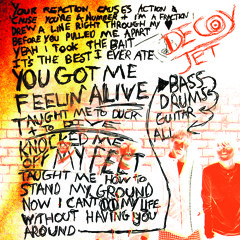 YOUR REACTION CAUSES ACTION &
'CAUSE YOU'RE A NUMBER + I'M A FRACTION
DREW A LINE RIGHT THROUGH MY
BEFORE YOU PULLED ME APART
YEAH I TOOK THE BAIT
IT'S THE BEST I EVER ATE
YOU GOT ME
FEELIN' ALIVE
TAUGHT ME TO DUCK
TO
KNOCKED ME
OFF MY FEET
TAUGHT ME HOW TO
STAND MY GROUND
NOW I CAN'T DO MY LIFE
WITHOUT HAVING YOU
AROUND
DECOY
JET
BASS
DRUMS
GUITAR
ALL